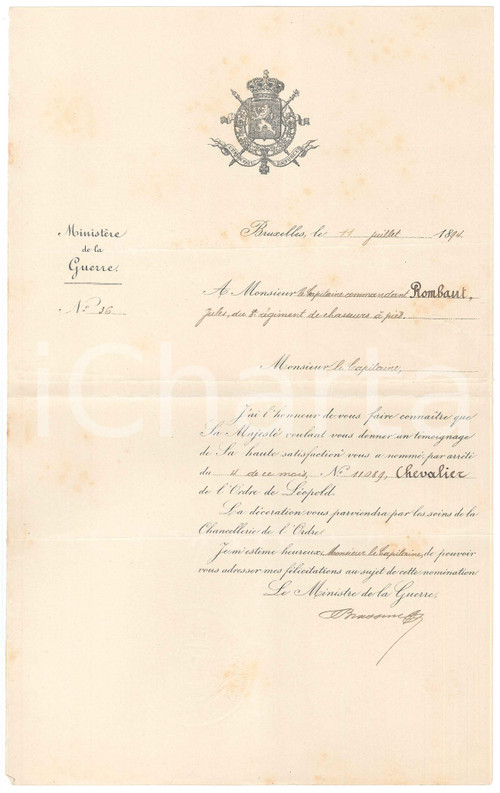 Bruxelles, le 11 juillet 1894.
Ministère
de la
Guerre.
N° 36
A Monsieur le Capitaine commandant Rombaut,
Jules, du régiment de chasseurs à pied.
Monsieur le Capitaine,
J'ai l'honneur de vous faire connaître que
Sa Majesté voulant vous donner un témoignage
de Sa haute satisfaction vous a nommé par arrêté
du de ce mois, N° 11089, Chevalier
de l'Ordre de Léopold.
La décoration vous parviendra par les soins de la
Chancellerie de l'Ordre.
Je m'estime heureux, Monsieur le Capitaine, de pouvoir
vous adresser mes félicitations au sujet de cette nomination
Le Ministre de la Guerre,
iCharta